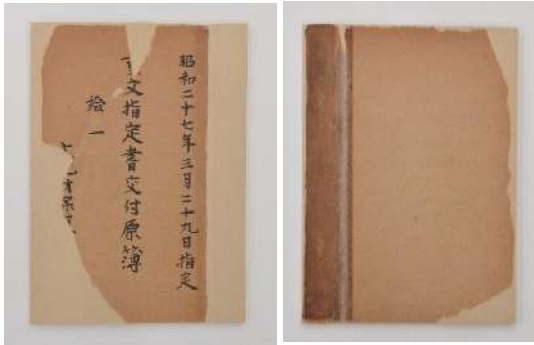 昭和二十七年三月二十九日指定
文指定書交付原簿
絵一